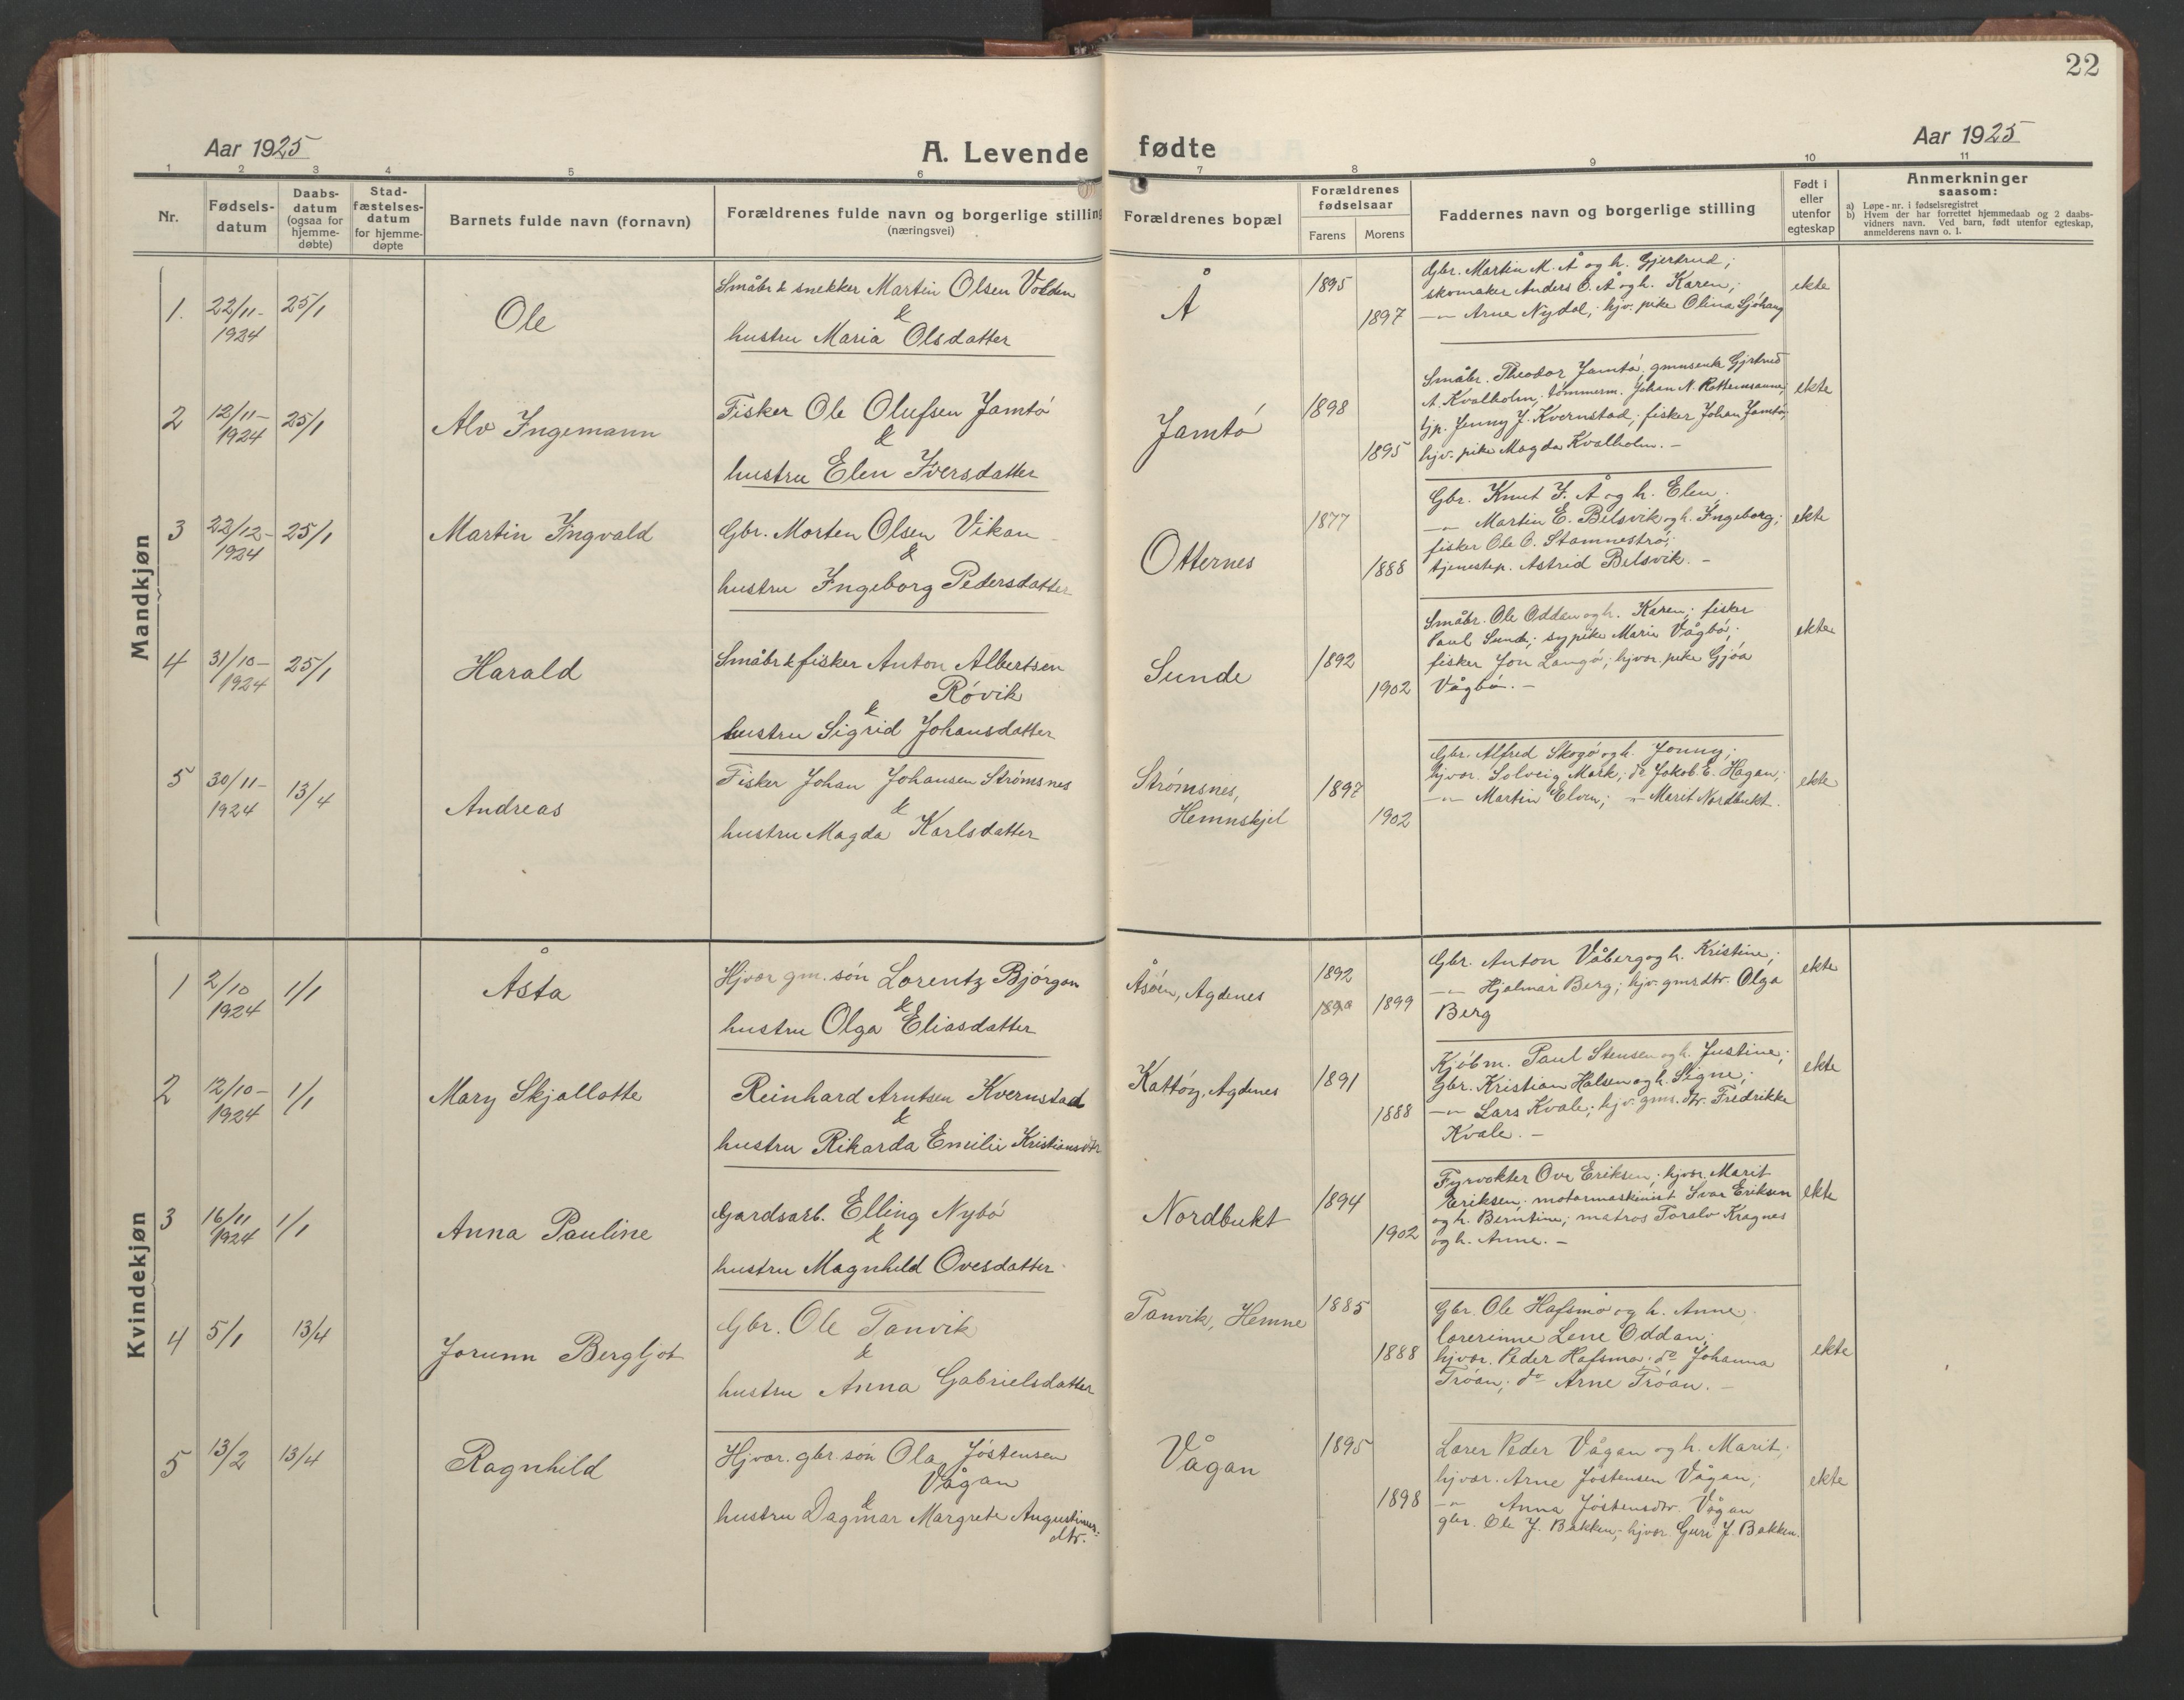 22
Aar 1925
A. Levende fødte
Aar 1925
1 2 3 4 5 6 7 8 9 10 11
Nr.
Fødsels-
datum
Daabs-
datum
(ogsaa for
hjemme-
døbte)
Stad-
fæstelses-
datum
for hjemme-
døpte
Barnets fulde navn (fornavn)
Forældrenes fulde navn og borgerlige stilling
(næringsvei)
Forældrenes bopæl
Forældrenes
fødselsaar
Farens Morens
Faddernes navn og borgerlige stilling
Født i
eller
utenfor
egteskap
Anmerkninger
saasom:
a) Løpe-nr. i fødselsregistret
b) Hvem der har forrettet hjemmedaab og 2 daabs-
vidners navn. Ved barn, født utenfor egteskap,
anmelderens navn o. l.
Mandkjøn
1. 22/11-
1924
25/1
Ole
Småbr & snekker Martin Olsen Volden
&
hustru Maria Olsdatter
Å
1895
1897
Gbr. Martin M. Å og h. Gjertrud;
skomaker Anders O. Å og h. Karen;
-"- Arne Nydal; hjv. pike Olina Sjøhaug
ekte
2 12/11-
1924
25/1
Alv Ingemann
Fisker Ole Olufsen Jamtö
&
hustru Elen Iversdatter
Jamtö
1898
1895
Småbr. Theodor Jamtö, gmnsenke Gjertrud
A. Kvalholm, tömmerm. Johan N. Rottemsanne;
tjp. Jenny J. Kvernstad; fisker Johan Jamtö;
hjv. pike Magda Kvalholm. -
ekte
3 22/12-
1924
25/1
Martin Ingvald
Gbr. Morten Olsen Vikan
&
hustru Ingeborg Pedersdatter
Otternes
1877
1888
Gbr. Knut I. Å og h. Elen;
-"- Martin E. Belsvik og h. Ingeborg;
fisker Ole O. Stamnestrø;
tjenestep. Astrid Belsvik. -
ekte
4 31/10-
1924
25/1
Harald
Småbr & fisker Anton Albertsen
Rövik
&
hustru Sigrid Johansdatter
Sunde
1892
1902
Småbr. Ole Oddan og h. Karen; fisker
Paul Sunde; sypike Marie Vågbö;
fisker Jon Langö; hjvær. pike Gjöa
Vågbö. -
ekte
5 30/11-
1924
13/4
Andreas
Fisker Johan Johansen Strømsnes
&
hustru Magda Karlsdatter
Strømsnes,
Hemnskjel
1897
1902
Gbr. Alfred Skogö og h. Jonny;
hjvær. Solveig Mork; do Jakob E. Hagan;
-"- Martin Elven; -"- Marit Nordbukt.
ekte
Kvindekjøn
1 2/10
1924
1/1
Åsta
Hjvær gm. sön Lorentz Bjørgan
&
hustru Olga Eliasdatter
Åsöen, Agdenes
1892
1899
Gbr. Anton Våberg og h. Kristine;
-"- Hjalmar Berg; hjv. gmsdtr. Olga
Berg
ekte
2 12/10-
1924
1/1
Mary Skjallotte
Reinhard Arntsen Kvernstad
&
hustru Rikarda Emilie Kristiansdtr
Kattöy, Agdenes
1891
1888
Kjöbm. Paul Stensen og h. Justine;
Gbr. Kristian Halsen og h. Signe;
-"- Lars Kvale; hjv. gms. dtr. Fredrikke
Kvale. -
ekte
3 16/11
1924
1/1
Anna Pauline
Gardsarb. Elling Nybö
&
hustru Magnhild Ovesdatter
Nordbukt
1894
1902
Fyrvokter Ove Eriksen; hjvær. Marit
Eriksen; motormaskinist Ivar Eriksen
og h. Berntine; matros Toralv Kragnes
og h. Anne. -
ekte
4 5/1
13/4
Jorunn Bergljot
Gbr. Ole Tanvik
&
hustru Anna Gabrielsdatter
Tanvik, Hemne
1885
1888
Gbr. Ole Hafsmo og h. Anne,
lærerinne Lene Oddan;
hjvær. Peder Hafsmo; do Johanna
Tröan; do Arne Tröan. -
ekte
5 13/2
13/4
Ragnhild
Hjvær. gbr. sön Ola Jöstensen
Vågan
&
hustru Dagmar Margrete Augustinus-
dtr.
Vågan
1895
1898
Lærer Peder Vågan og h. Marit;
hjvær. Arne Jöstensen Vågan;
-"- Anna Jöstensdtr. Vågan
gbr. Ole J. Bakken; hjvær. Guri J. Bakken.
ekte